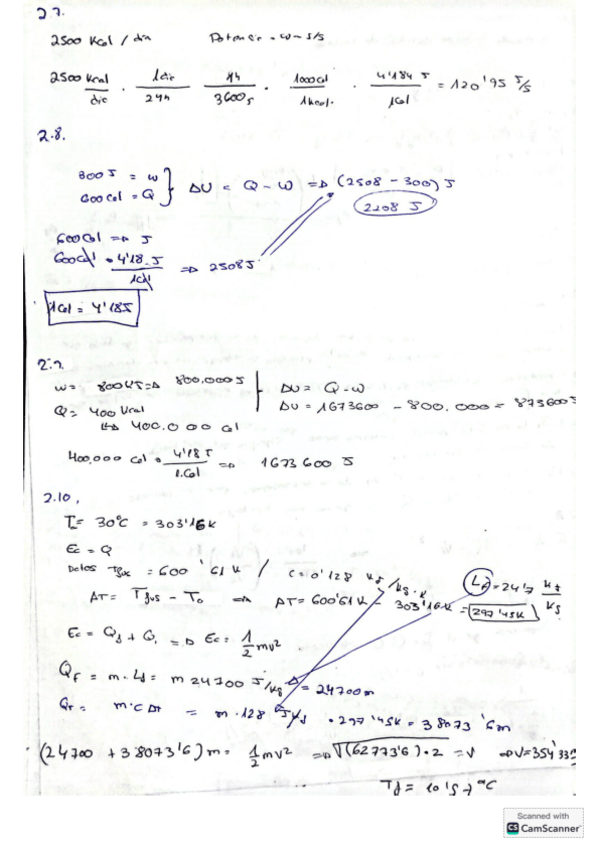 2.7.
2500 Kcal / dia Potencia = W - J/s
2500 Kcal / dia · 1 dia / 24h · 1h / 3600 s · 1000 cal / 1 kcal. · 4'184 J / 1 Cal = 120'95 J/s
2.8.
300 J = W
600 Cal = Q } ΔU = Q - W => (2508 - 300) J
2208 J
600 Cal => J
600 Cal · 4'18 J / 1 Cal => 2508 J
1 Cal = 4'18 J
2.9.
W = 800 KJ => 800.000 J
Q = 400 Kcal
ΔU = Q - W
ΔU = 1673600 - 800.000 = 873600 J
400.000 Cal
400.000 Cal · 4'18 J / 1 Cal => 1673600 J
2.10.
T = 30°C = 303'16 K
Ec = Q
Datos Tfus = 600'61 K / C = 0'128 KJ/kg·K Lf = 24'7 KJ/Kg
ΔT = Tfus - To => ΔT = 600'61 K - 303'16 K = 297'45 K
Ec = Qf + Q => Ec = 1/2 mv²
QF = m · Lf = m 24700 J/kg => 24700 m
= m·C ΔT = m · 128 · 297'45 K = 38073'6 m
(24700 + 38073'6) m = 1/2 mv² => √(62773'6)·2 = v => V = 354'33